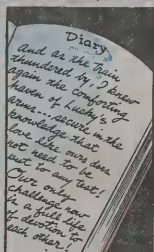 Diary
And as the train
thundered by, I knew
again the comforting
haven of Lucky's
arms.... secure in the
knowledge that
love like ours does
not need to be
put to any test!
Our only
challenge now
is a full life
of devotion to
each other!